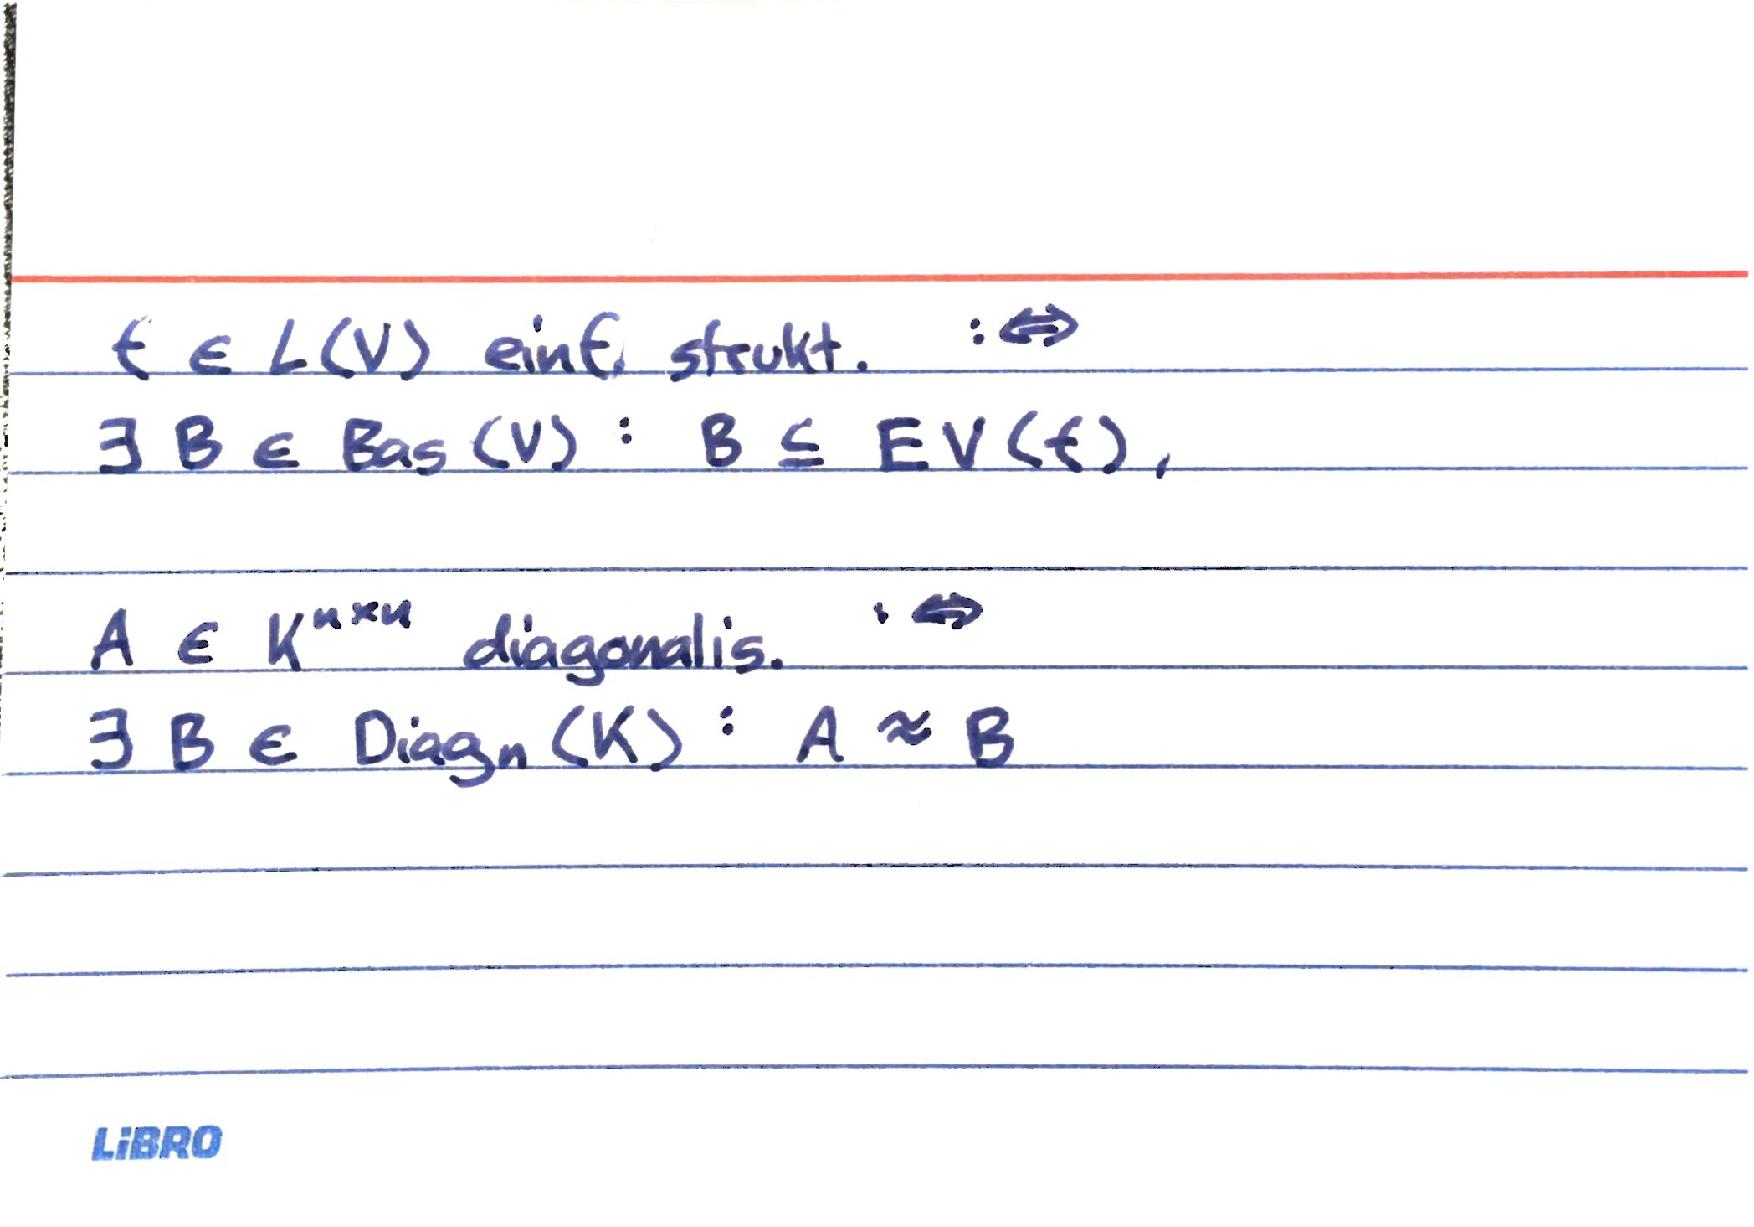 f ∈ L(V) einf. strukt. :⇔
∃ B ∈ Bas(V) : B ⊆ EV(f),
A ∈ K^{n×n} diagonalis. :⇔
∃ B ∈ Diag_n(K) : A ≈ B
LiBRO